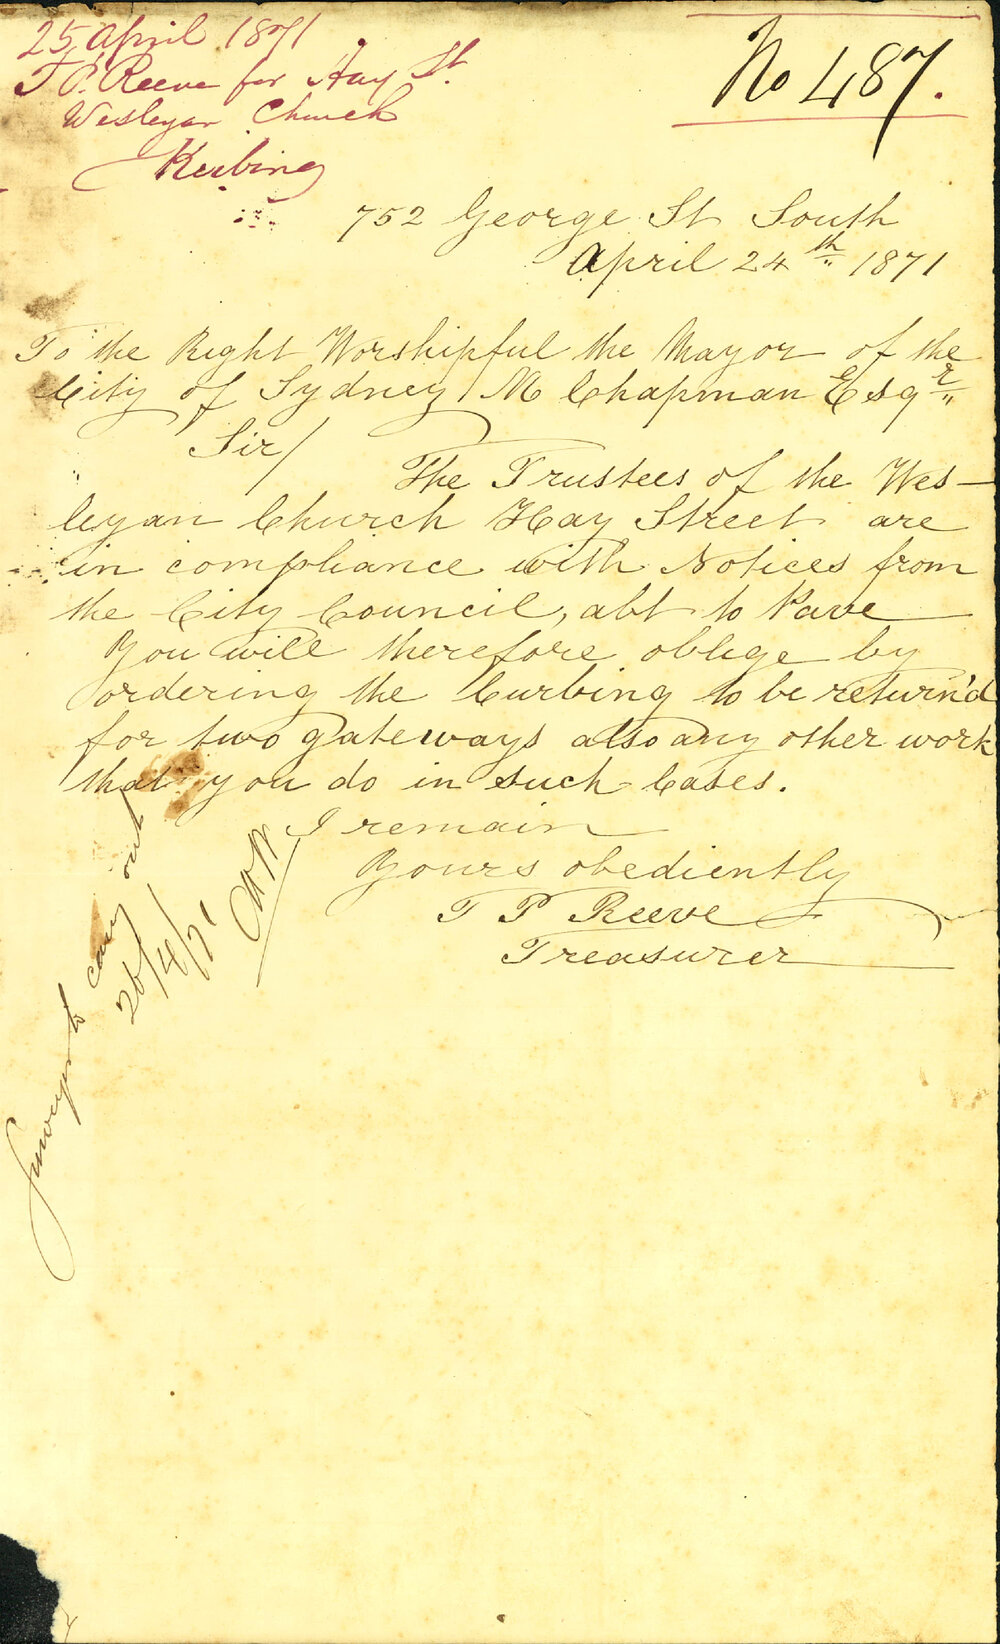 25 April 1871
T P. Reeve for Hay St.
Wesleyan Church
Kerbing
No 487.
752 George St South
April 24th 1871
To the Right Worshipful the Mayor of the
City of Sydney / M Chapman Esqre
Sir /
The Trustees of the Wes-
leyan Church Hay Street are
in compliance with Notices from
the City Council, abt to Pave
You will therefore oblige by
ordering the Curbing to be return'd
for two gateways also any other work
that you do in such Cases.
I remain
Yours obediently
T P Reeve
Treasurer
Surveyor to carry out
26/4/71